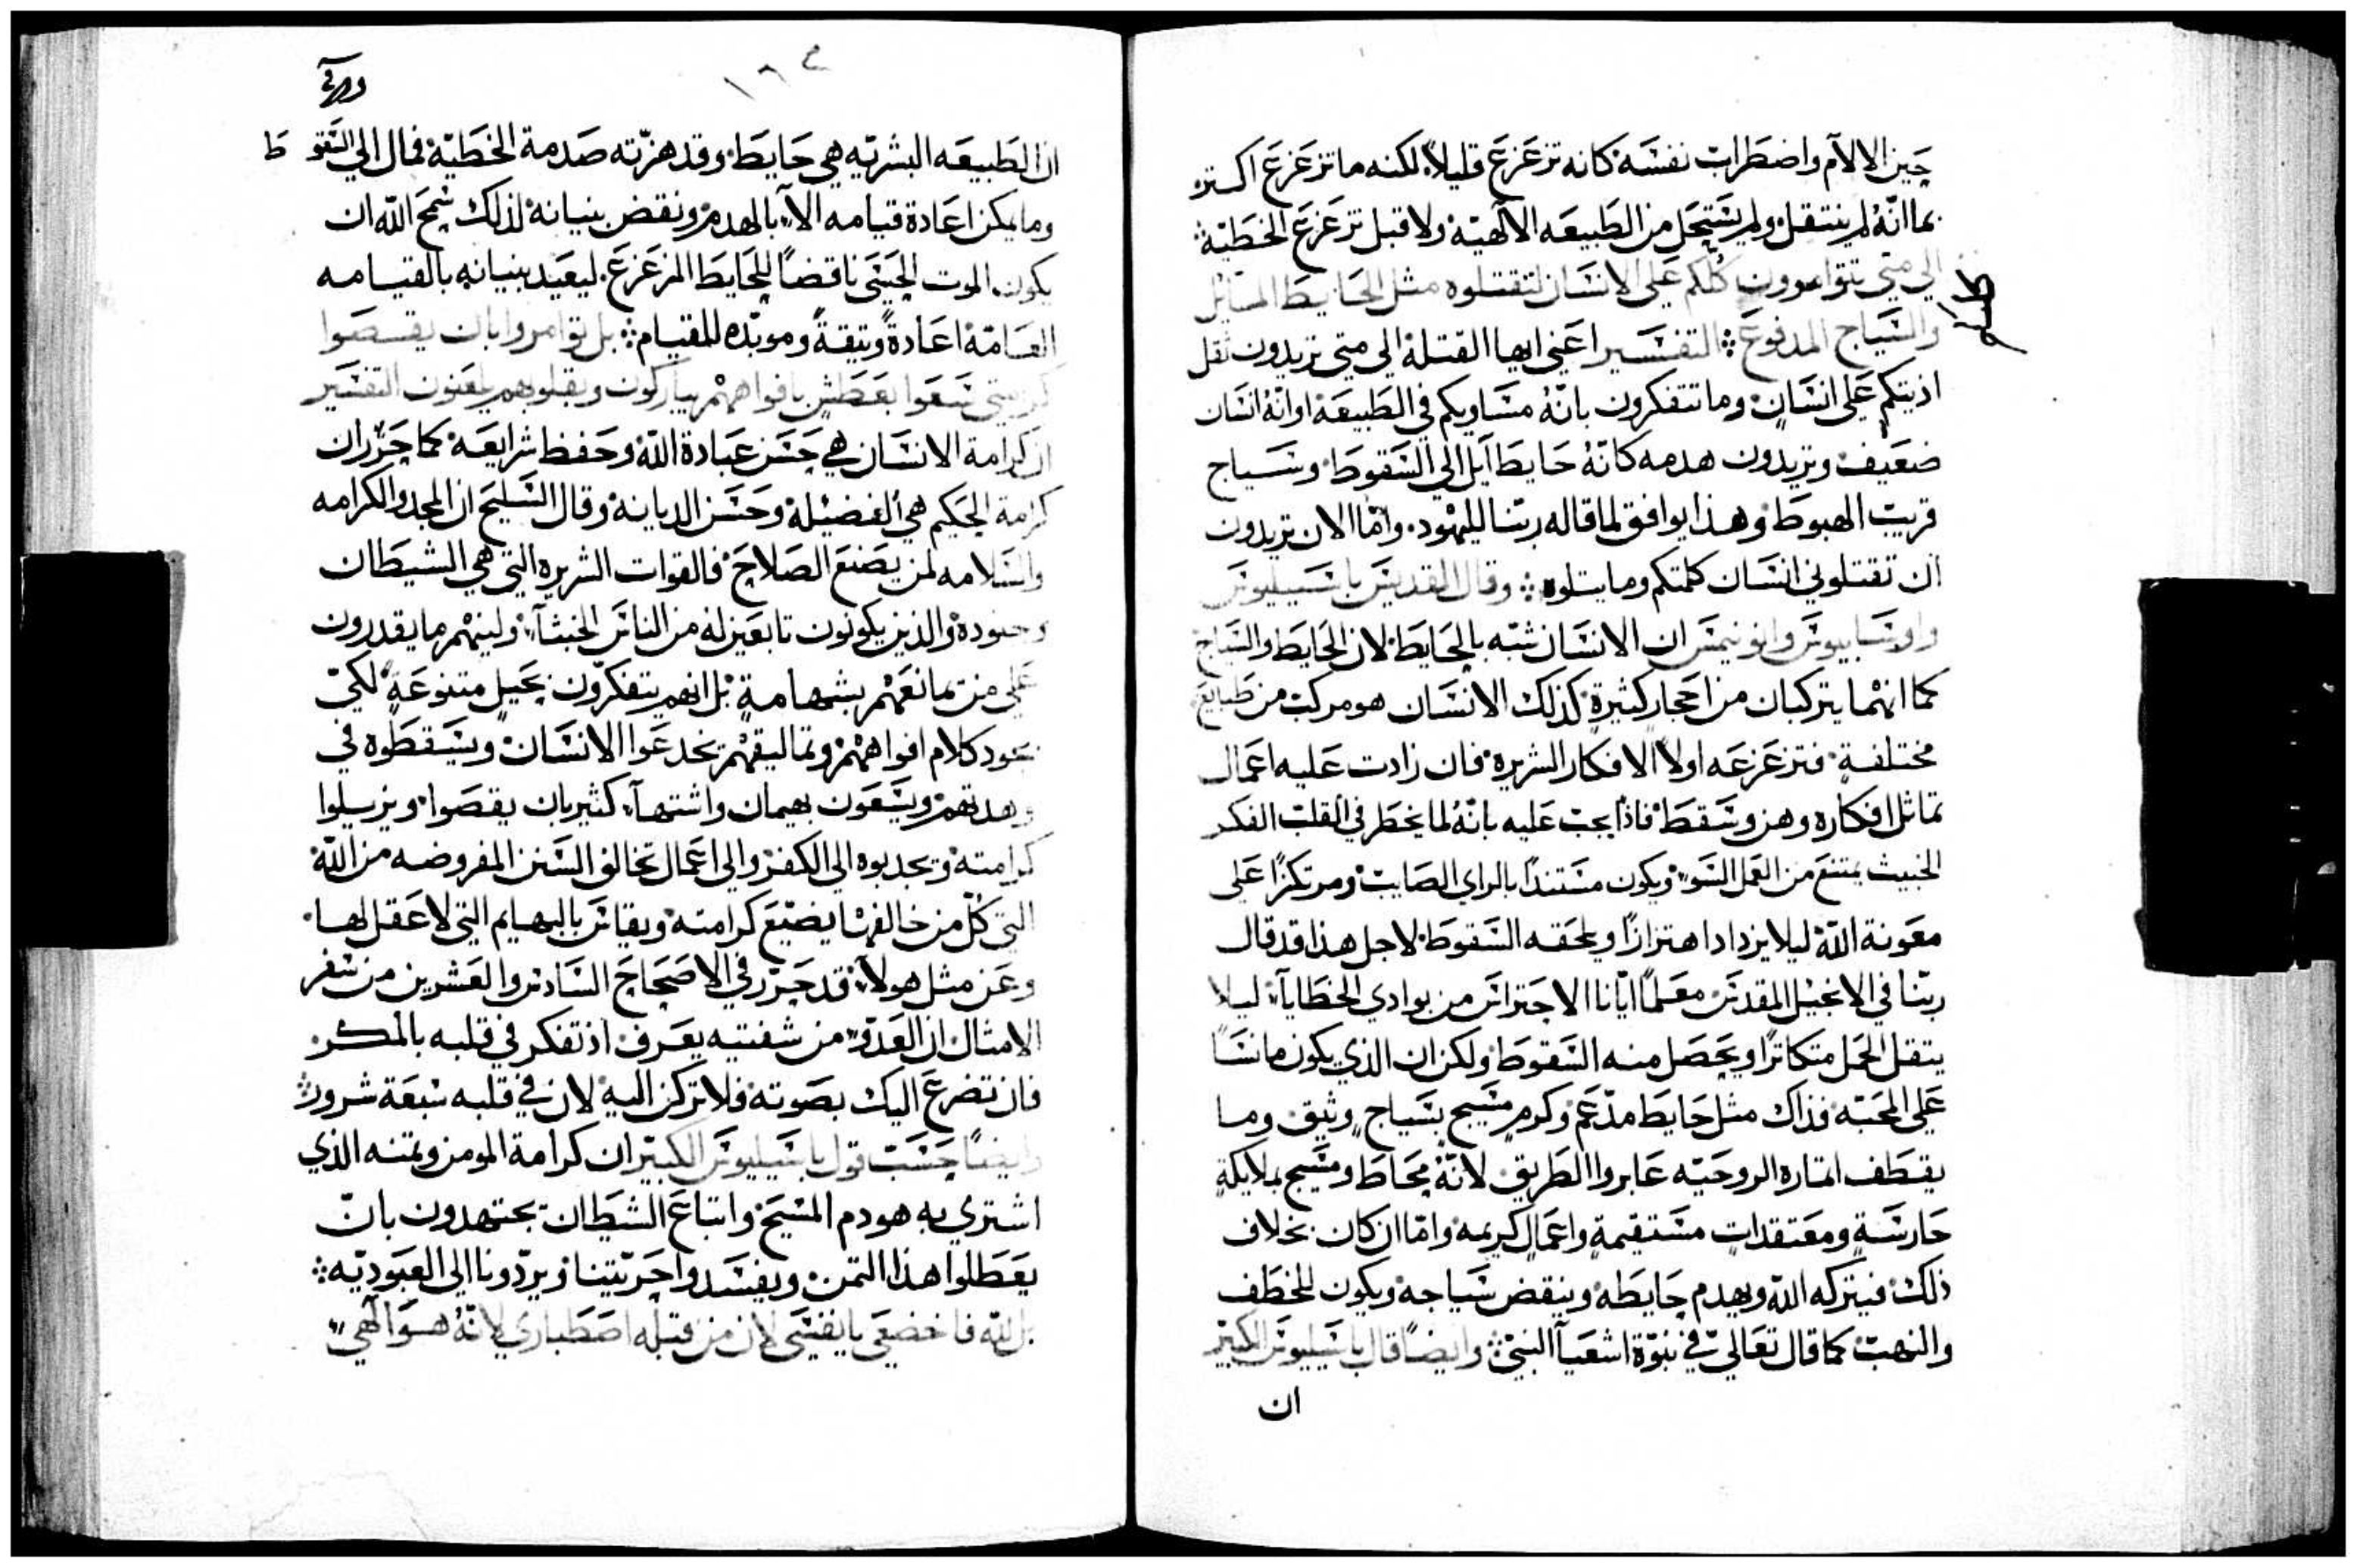 حين الالام واضطراب نفسه كانه تزعزع قليلاً لكنه ما تزعزع اكتر
بما انّهُ لم ينتقل ولم يستحل من الطبيعه الالهيّه ولا قبل تزعزع الخطيّة
الي متي تتوامرون كلكم علي الانسان لتقتلوه مثل الحايط المايل
والسياج المدفوع التفسير اعني ايها القتلة الي متي تريدون ثقل
اذيتكم علي انسانٍ وما تتفكرون بانّهُ مساويكم في الطبيعة او انّهُ انسان
ضعيف وتريدون هدمه كانّهُ حايط آيل الي السقوط وسياج
قريب الهبوط وهذا يوافق لما قاله ربّنا لليهود وامّا الان تريدون
ان تقتلوني انسان كلمتكم وما يتلوه وقال القديس باسيليوس
واوسابيوس وانونيمس ان الانسان شبّه بالحايط لان الحايط والسياج
كما انهما يتركبان من احجار كثيرة كذلك الانسان هو مركب من طبايع
مختلفةٍ فتزعزعه اولاً الافكار الشريره فان زادت عليه اعمال
تماثل افكاره وهن وسقط فاذاً يجب عليه بانّهُ لما يخطر في القلب الفكر
الخبيث يمتنع من العمل السو ويكون مستنداً بالراي الصايب ومرتكزاً علي
معونة الله ليلا يزداد اهتزازاً ويلحقه السقوط لاجل هذا قد قال
ربّنا في الانجيل المقدس معلماً ايّانا الاحتراس من بوادي الخطايآ ليلا
يتقل الحمل متكاتراً ويحصل منه السقوط ولكن ان الذي يكون ماسسّاً
علي المحبّه فذاك مثل حايط مدّعم وكرمٍ مسيج بسياجٍ وثيق وما
يقطف اتماره الروحيّه عابروا الطريق لانّهُ محاط ومسيج بملايكةٍ
حارسةٍ ومعتقداتٍ مستقيمةٍ واعمال كريمه وامّا ان كان بخلاف
ذلك فيتركه الله ويهدم حايطه وينقض سياجه ويكون للخطف
والنهب كما قال تعالي في نبوّة اشعيآ النبيّ وايضاً قال باسيليوس الكبير
ان
١٦٤
ان الطبيعه البشريّه هي حايط وقد هزّته صدمة الخطيّة فمال الي السقوط
وما يمكن اعادة قيامه الا بالهدم ونقض بنيانه لذلك سمح الله ان
يكون الموت الحِسّي ناقضاً للحايط المزعزع ليعيد بنيانه بالقيامه
العامّة اعادةً وتيقةً وموبّده للقيام بل توامروا بان يقصوا
كرامتي سعوا بعطش بافواههم يباركون وبقلوبهم يلعنون التفسير
ان كرامة الانسان هي حسن عبادة الله وحفظ شرايعه كما حرّر ان
كرامة الحكيم هي الفضيلة وحسن الديانه وقال السليح ان المجد والكرامه
والسلامه لمن يصنع الصلاح فالقوات الشريره التي هي الشيطان
وجنوده والذين يكونون تابعين له من الناس الخبثآ ولينهم ما يقدرون
علي من تمانعهم بشهامةٍ بل انهم يتفكرون بحيلٍ متنوعةٍ لكيّ
بجود كلام افواههم وتماليقهم يخدعوا الانسان ويسقطوه في
وهدتهم ويسعون بهيمان واشتهآ كثير بان يقصوا ويزيلوا
كرامته ويجدبوه الي الكفر والي اعمال تخالف السنن المفروضه من الله
التي كلّ من خالفها يضيّع كرامته ويقاس بالبهايم التي لا عقل لها
وعن مثل هولآ قد حرّر في الاصحاح السادس والعشرين من سفر
الامثال ان العدوّ من شفتيه يعرف اذ تفكر في قلبه بالمكر
فان تضرع اليك بصوته فلا تركن اليه لان في قلبه سبعة شرور
وايضاً حسب قول باسيليوس الكبير ان كرامة المومن وتمنه الذي
اشتري به هو دم المسيح واتباع الشيطان يجتهدون بانّ
يعطلوا هذا التمن ويفسدوا حريّتنا ويردّونا الي العبوديّه
بل لله فاخضعي يا نفسي لان من قبله اصطباري لانّهُ هو آلهي